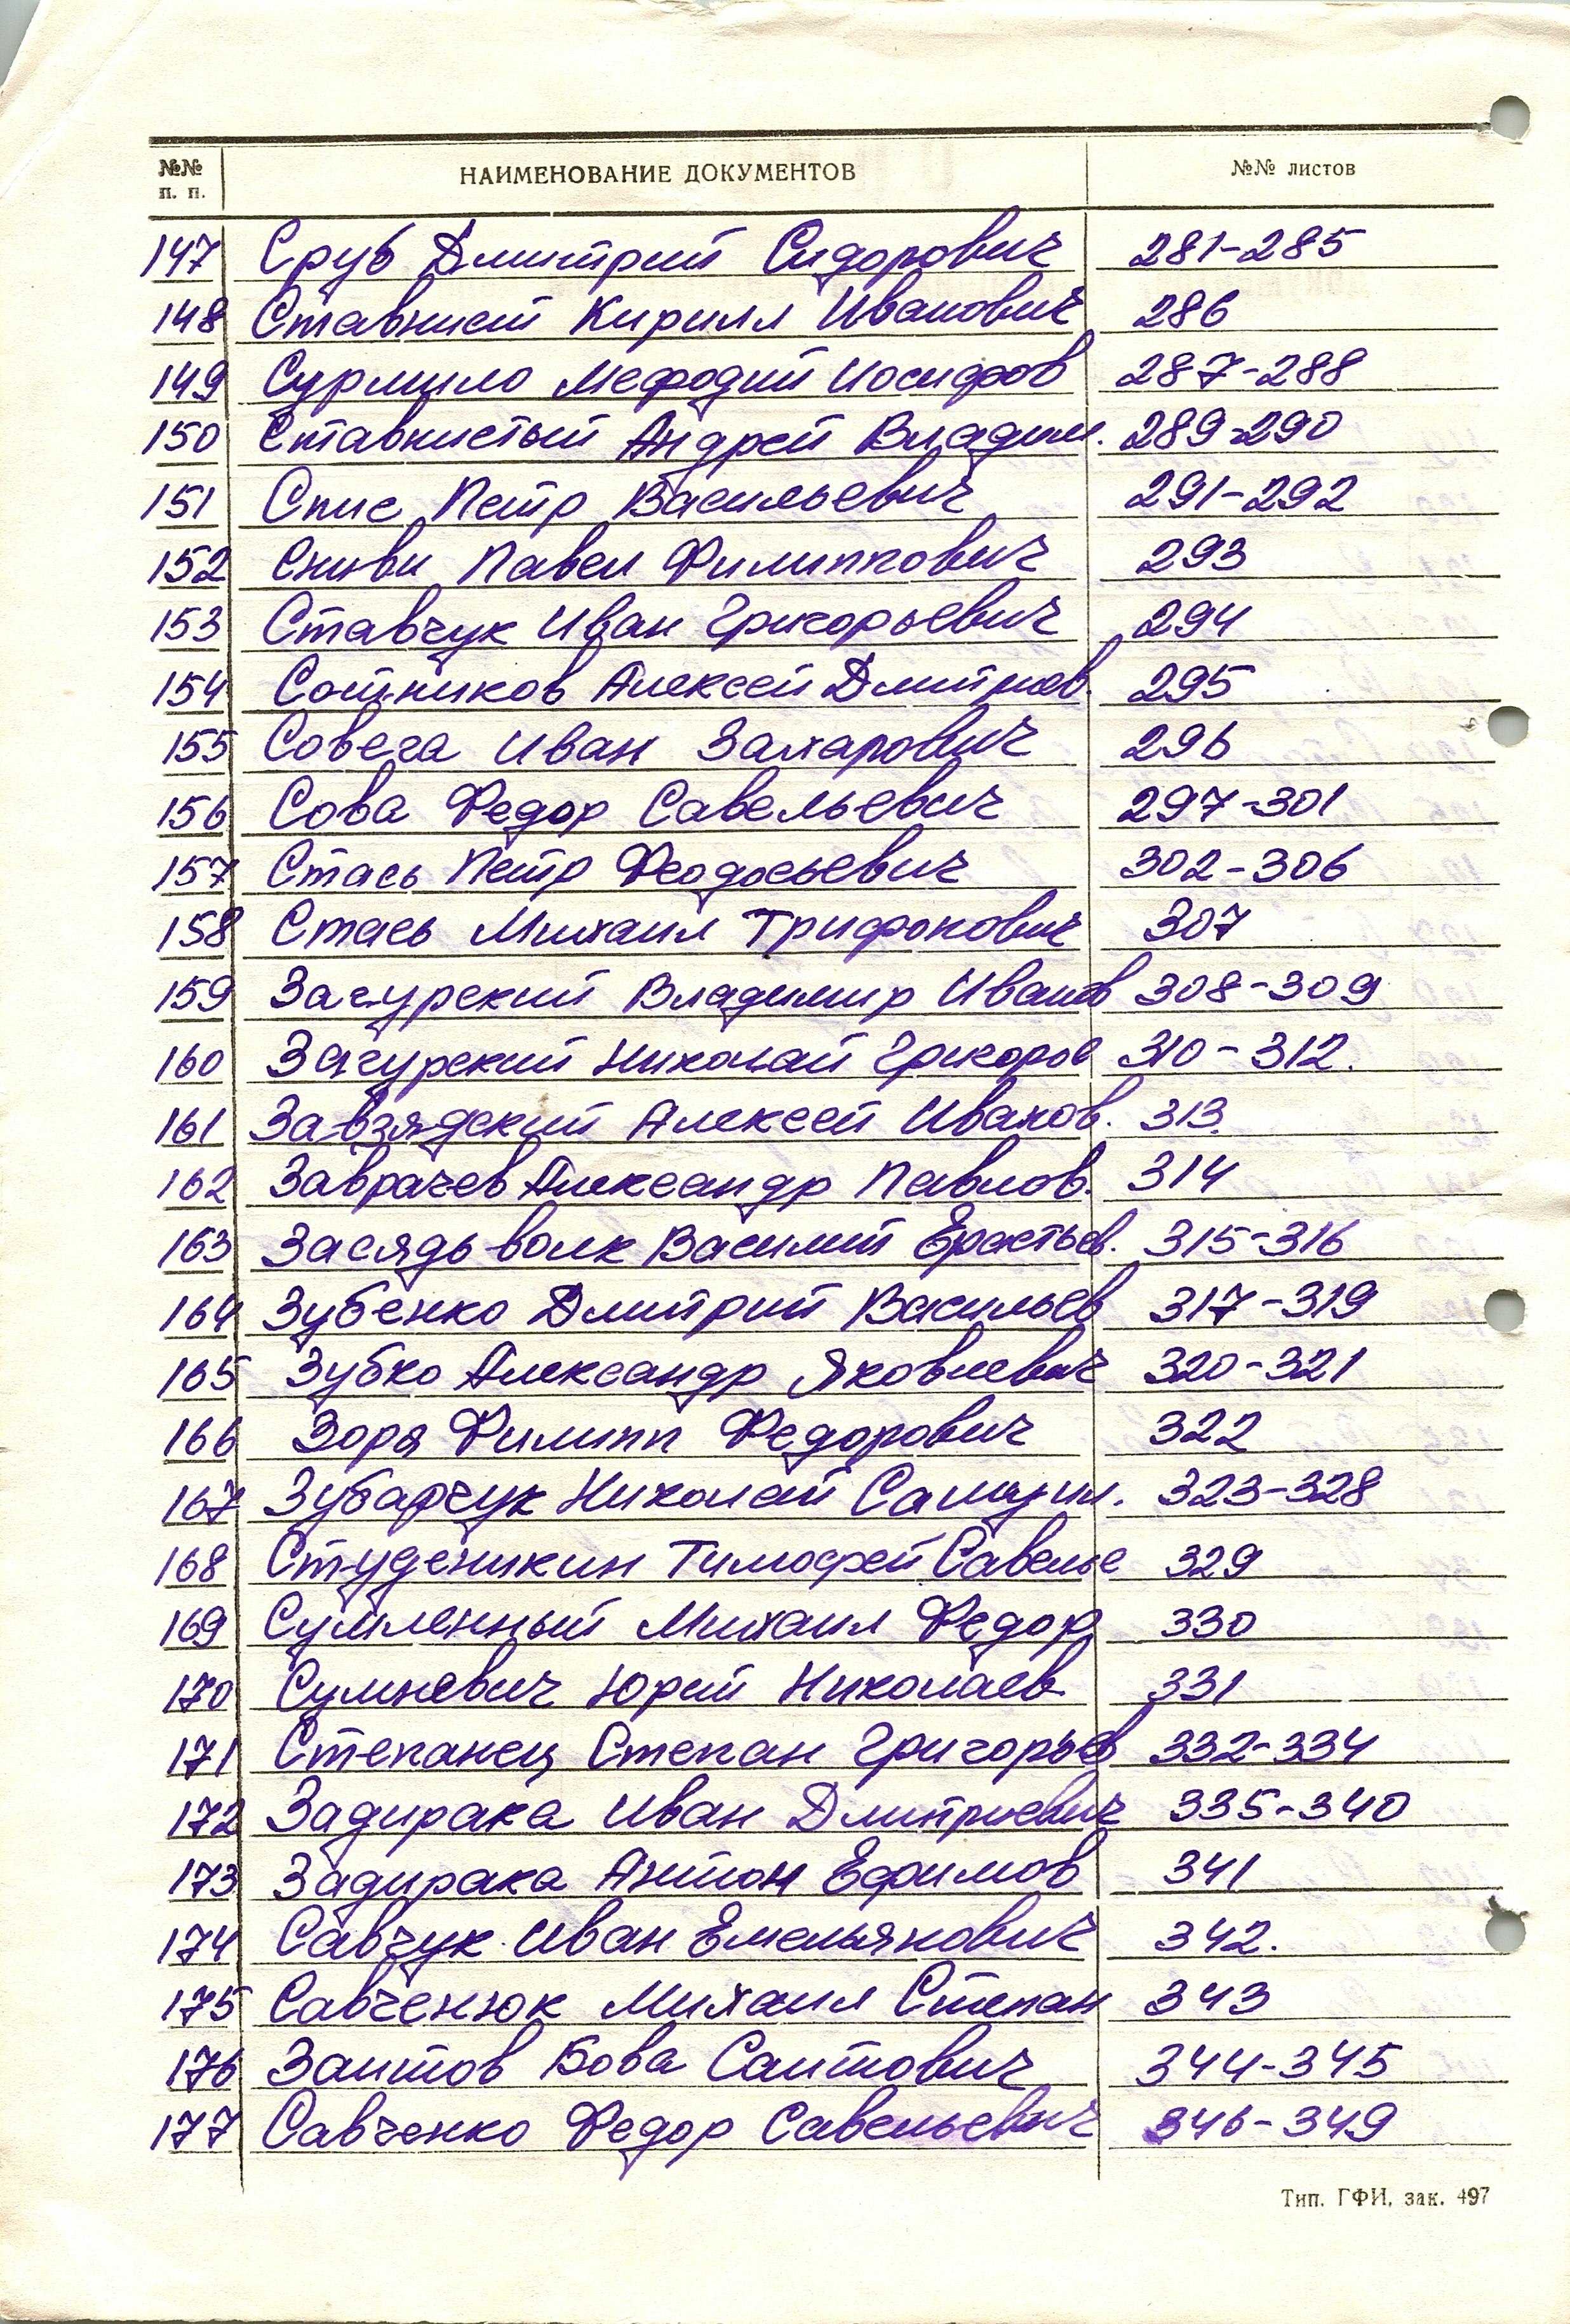 №№ п. п. НАИМЕНОВАНИЕ ДОКУМЕНТОВ №№ листов
147 Сруб Дмитрий Сидорович 281-285
148 Ставний Кирилл Иванович 286
149 Сурмило Мефодий Иосифов 287-288
150 Ставнистый Андрей Владим. 289-290
151 Спис Петр Васильевич 291-292
152 Павел Филиппович 293
153 Ставчук Иван Григорьевич 294
154 Сотников Алексей Дмитриев. 295
155 Совега Иван Захарович 296
156 Сова Федор Савельевич 297-301
157 Стась Петр Феодосьевич 302-306
158 Стась Михаил Трифонович 307
159 Загурский Владимир Иванов 308-309
160 Загурский Николай Григоров 310-312.
161 Завзядский Алексей Иванов. 313.
162 Заврачев Александр Павлов. 314
163 Засядь-волк Василий Ерастьев. 315-316
164 Зубенко Дмитрий Васильев 317-319
165 Зубко Александр Яковлевич 320-321
166 Зоря Филипп Федорович 322
167 Зубарчук Николай Самуил. 323-328
168 Студеникин Тимофей Савелье 329
169 Сумленный Михаил Федор 330
170 Сумневич Юрий Николаев 331
171 Степанец Степан Григорьев 332-334
172 Задирака Иван Дмитриевич 335-340
173 Задирака Антон Ефимов 341
174 Савчук Иван Емельянович 342.
175 Савченюк Михаил Степан 343
176 Заитов Бова Саитович 344-345
177 Савченко Федор Савельевич 346-349
Тип. ГФИ, зак. 497